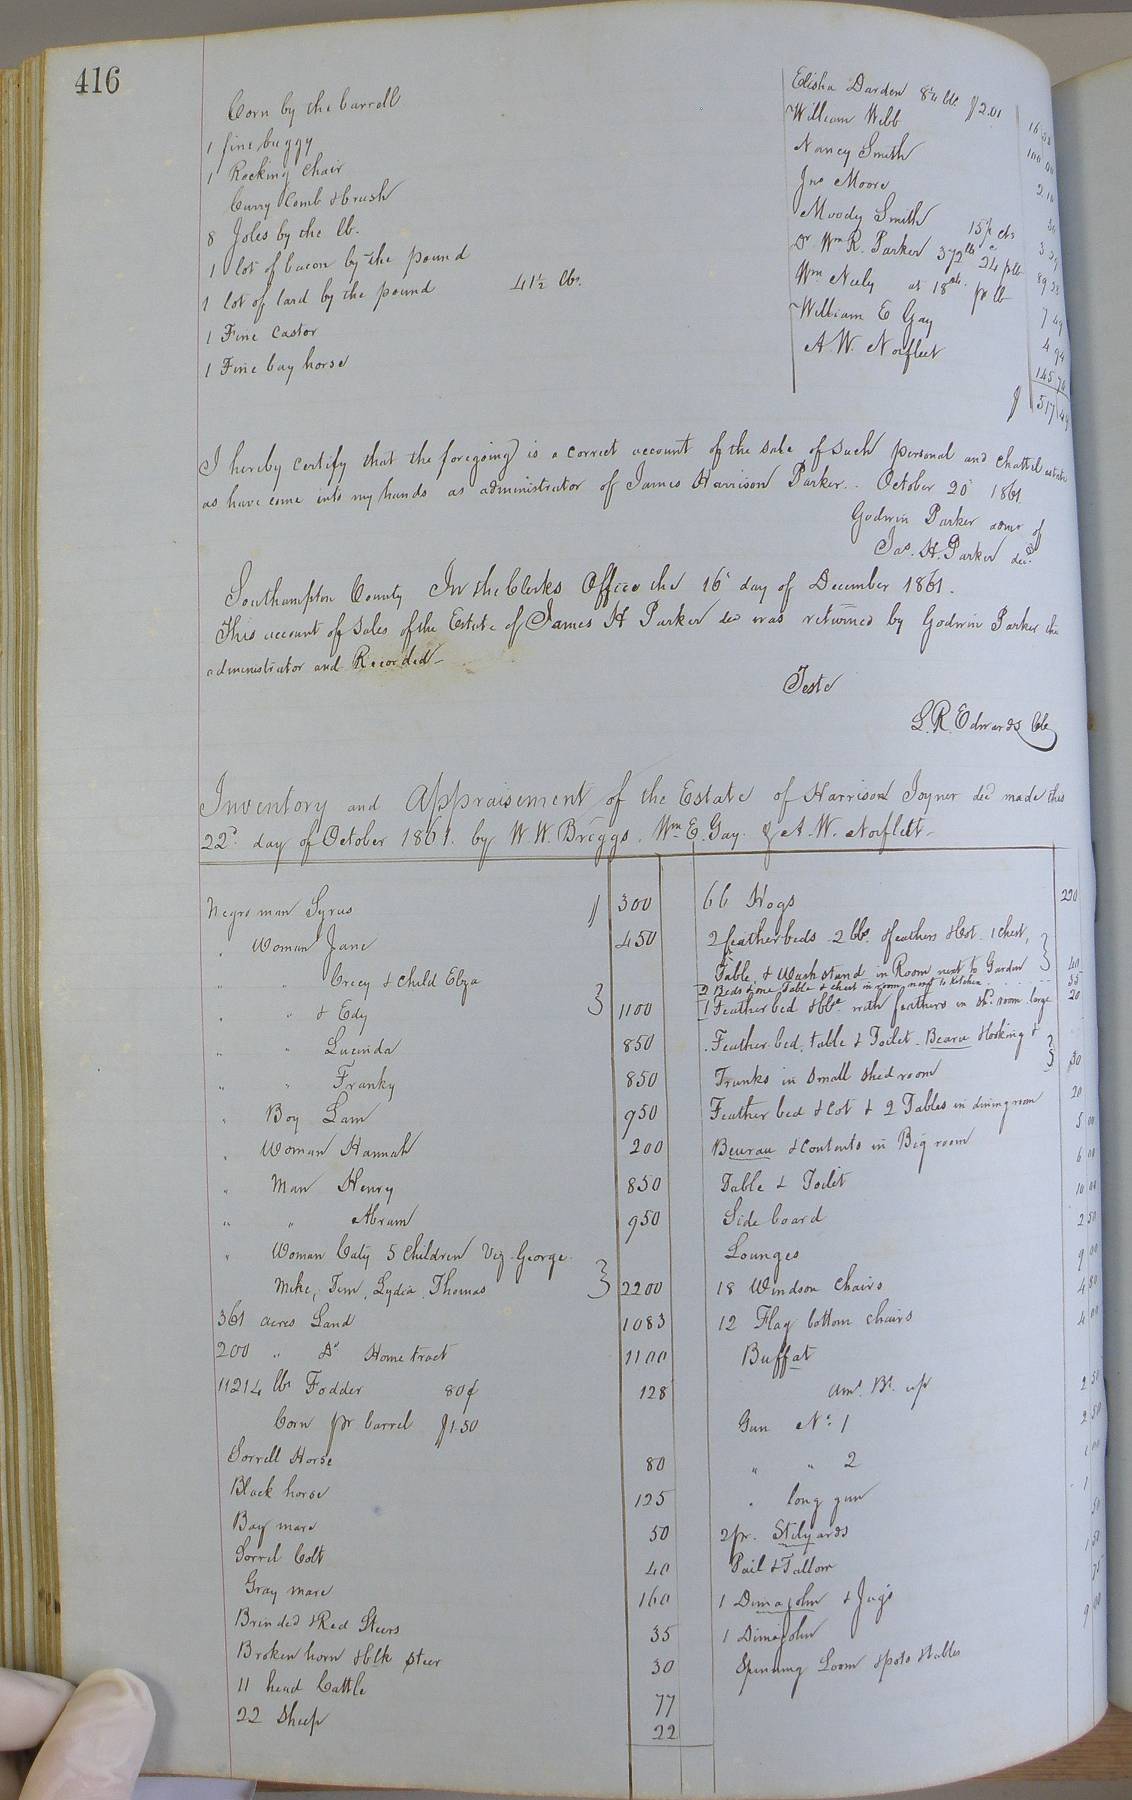 416
Corn by the barrell Elisha Darden 8¼ bbs $2.01
1 fine buggy William Webb 100 00
1 Rocking Chair Nancy Smith 2 10
Curry Comb & brush Jno Moore
8 Joles by the lb. Moody Smith 15 p cts
1 lot of bacon by the pound Dr Wm R. Parker 372 lb 24 p lb 89 28
1 lot of lard by the pound 41½ lbs. Wm Neely at 18 cts. pr lb 7 49
1 Fine Castor William E Gay 4
1 Fine bay horse A. W. Norfleet 145
$ 517 49
I hereby certify that the foregoing is a correct account of the sale of such personal and chattel estate
as have come into my hands as administrator of James Harrison Parker. October 20 1861
Godwin Parker admr of
Jas. H. Parker decd.
Southampton County In the Clerks Office the 16 day of December 1861.
This account of sales of the Estate of James H Parker decd was returned by Godwin Parker the
administrator and Recorded_
Teste
L. R. Edwards Clk
Inventory and Appraisement of the Estate of Harrison Joyner decd made this
22d day of October 1861. by W. W. Briggs, Wm E. Gay. & A. W. Norflett_
Negro man Syrus $ 300
" Woman Jane 450
" " Crecy & Child Eliza
" " & Edy } 1100
" " Lucinda 850
" " Franky 850
" Boy Sam 950
" Woman Hannah 200
" Man Henry 850
" " Abram 950
" Woman Caty 5 Children Viz George
Mike, Tim, Lydia, Thomas } 2200
361 acres Land 1083
200 " Do Home tract 1100
11214 lbs Fodder 80¢ 128
Corn pr barrel $1.50
Sorrell Horse 80
Black horse 125
Bay mare 50
Sorrel Colt 40
Gray mare 160
Brinded & Red Steers 35
Broken horn & blk steer 30
11 head Cattle 77
22 Sheep 22
66 Hogs 220
2 featherbeds 2 bbs. feathers & Cot 1 chest,
Table & Wash stand in Room next to Garden } 40
2 Beds & one Table & chest in room next to Kitchen 55
1 Feather bed & with feathers in Sd. room large 20
Feather bed, table & Toilet Bearu &
Trunks in small shed room } 30
Feather bed & Cot & 2 Tables in diningroom 20
Beurau & Contents in Big room 5 00
Table & Toilet 6 00
Side board 10 00
Lounges 2 50
18 Windson Chairs 9 00
12 Flag bottom chairs 4 80
Buffat 4 00
amt. Bt. up
Gun No. 1 2 50
" " 2 2 50
" long gun 1 00
2 pr. Stilyards 1
Pail & Tallow 50
1 Dimajohn & Jugs 1 50
1 Dimajohn 75
Spinning Loom & tables 9 00